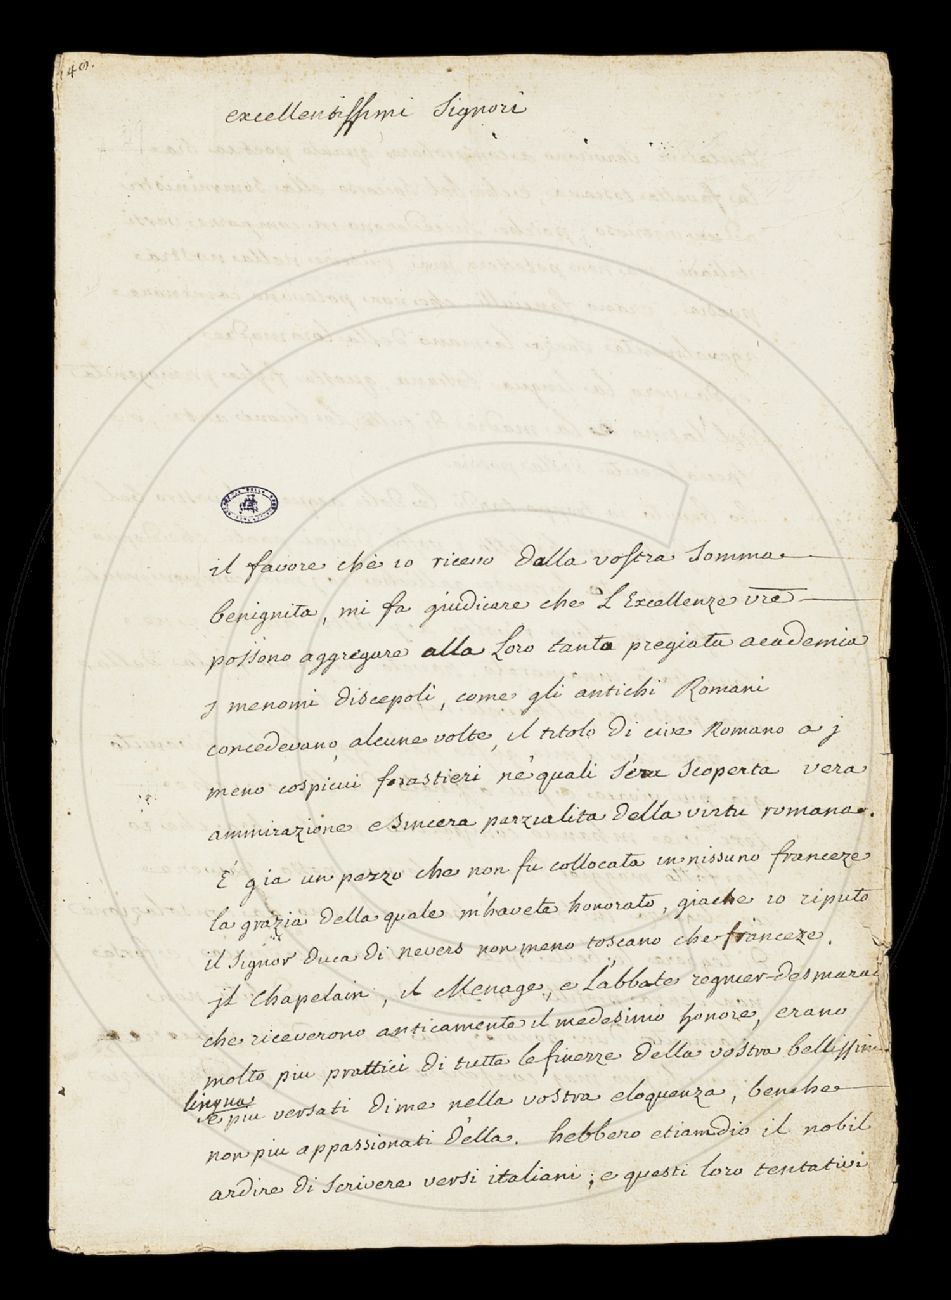 149.
excellentissimi Signori
il favore che io ricevo dalla vostra Somma
benignita, mi fa giudicare che L'Excellenze vre
possono aggregare alla Loro tanto pregiata academia
j menomi discepoli, come gli antichi Romani
concedevano alcune volte, il titolo di cive Romano a j
meno cospicui forastieri ne' quali S'era Scoperta vera
ammirazione e Sincera parzialita della virtu romana.
É gia un pezzo che non fu collocata in nissuno franceze
la grazia della quale m'havete honorato, giache io riputo
il Signor Duca di nevers non meno toscano che franceze.
jl Chapelain, il Menage, e L'abbate regnier-desmarai
che riceverono anticamente il medesimo honore, erano
molto piu prattici di tutte le finezze della vostra bellissima
lingua
e piu versati di me nella vostra eloquenza, benche
non piu appassionati d'ella. hebbero etiamdio il nobil
ardire di Scrivere versi italiani; e questi loro tentativi